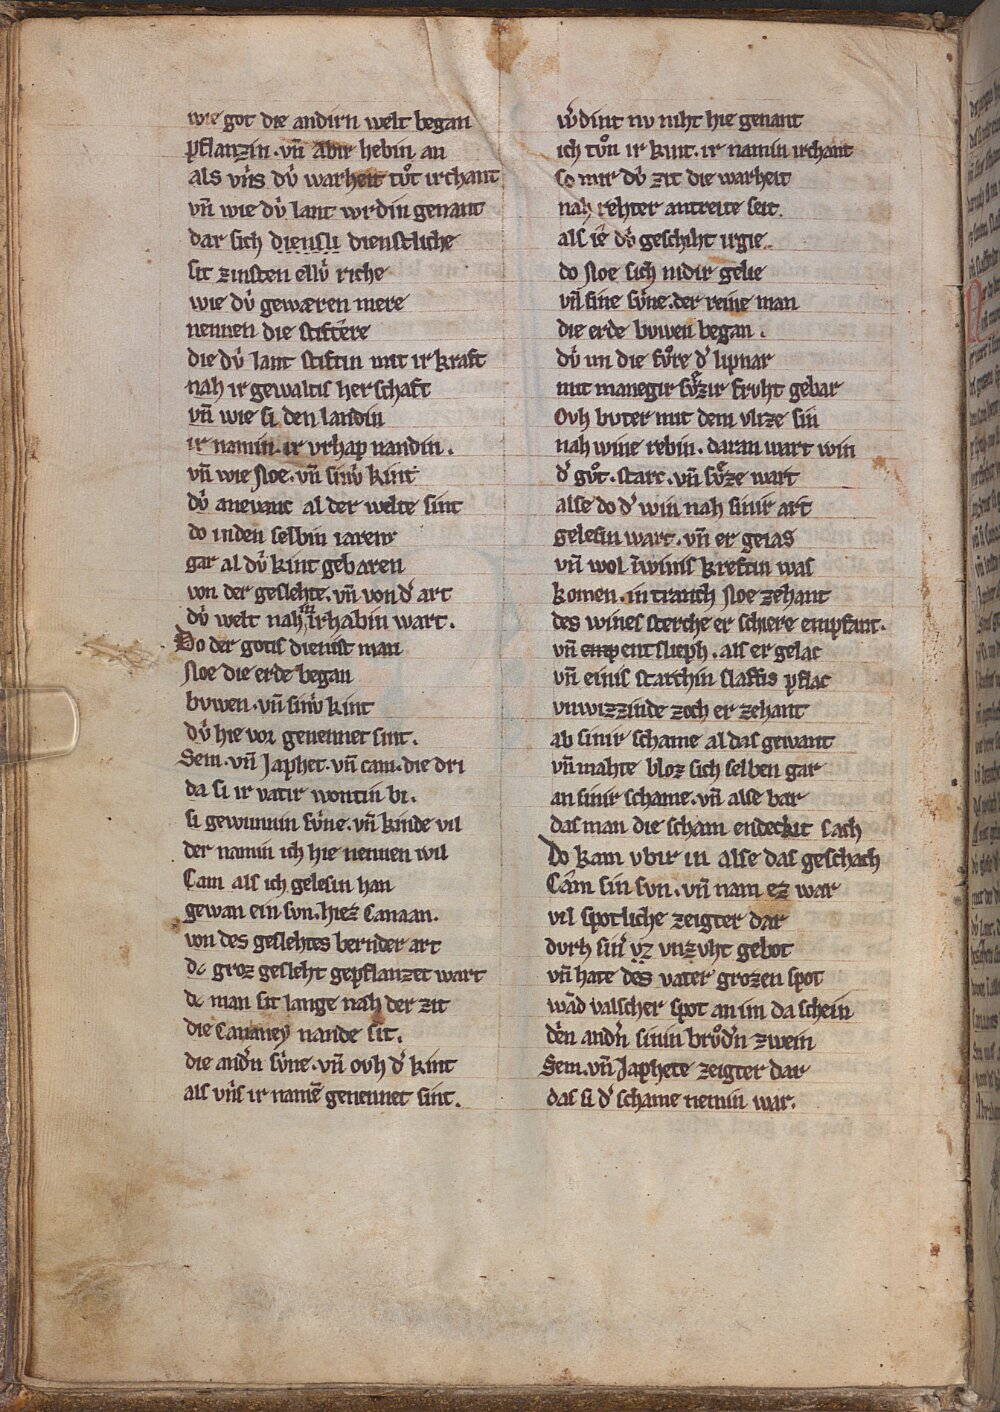 wie got die andirn welt began
pflanzin · vn̄ abir hebin an
als vn̓s dv̓ warheit tv̊t irchant
vn̄ wie dv̓ lant wrdin genant
dar sich diensli dienstliche
sit zinsten ellv̓ riche
wie dv̓ gewæren mere
nennen die stiftere
die dv̓ lant stiftin mit ir kraft
nah ir gewaltis herschaft
vn̄ wie si den landin
ir namin · ir vrhap nandin .
vn̄ wie Noe · vn̄ sinv̓ kint
dv̓ anevanc al der welte sint
do inden selbin iaren
gar al dv̓ kint gebaren
von der geslehte · vn̄ von d̓ art
dv̓ welt nah in irhabin wart .
Do der gotis dienist man
Noe die erde began
bvwen · vn̄ sinv̓ kint
dv̓ hie vor genennet sint .
Sem · vn̄ Japhet · vn̄ cam · die dri
da si ir vatir wontin bi .
si gewunnin sv̓ne · vn̄ kinde vil
der namin ich hie nennen wil
Cam als ich gelesin han
gewan ein svn · hiez Canaan .
von des geslehtes bernder art
dc groz geslecht gepflanzet wart
dc man sit lange nah der zit
die Cananey nande sit .
die and̓n sv̓ne · vn̄ ovh d̓ kint
als vn̓s ir namē genennet sint .
w̓dint nv niht hie genant
ich tv̊n ir kint · ir namin irchant
so mir dv̓ zit die warheit
nah rehter antreite seit .
als ie dv̓ geschiht irgie
do Noe sich nidir gelie
vn̄ sine sv̓ne · der reine man
die erde bvwen began .
dv̓ im die fv̊re d̓ lipnar
mit manegir sv̊zir frvht gebar
Ovh bvter mit dem vlize sin
nah wine rebin · daran wart win
d̓ gv̊t · starc · vn̄ sv̊ze wart
alse do d̓ win nah sinir art
gelesin wart · vn̄ er geias
vn̄ wol īwinis kreftin was
komen · in tranch Noe zehant
des wines sterche er schiere enpfant ·
vn̄ emp entslieph · als er gelac
vn̄ einis starchin slaffis pflac
vnwizzinde zoch er zehant
ab sinir schame al das gewant
vn̄ mahte bloz sich selben gar
an sinir schame · vn̄ alse bar
das man die scham endeckit sach
Do kam vbir in alse das geschach
Cam sin svn · vn̄ nam ez war
vil spotliche zeigter dar
dvrh sin̓ vz vnzvht gebot
vn̄ hate des vater grozen spot
wād valscher spot an im da schein
den and̓n sinin brv̊d̓n zwein
Sem · vn̄ Japhete zeigter dar
das si d̓ schame nemin war .